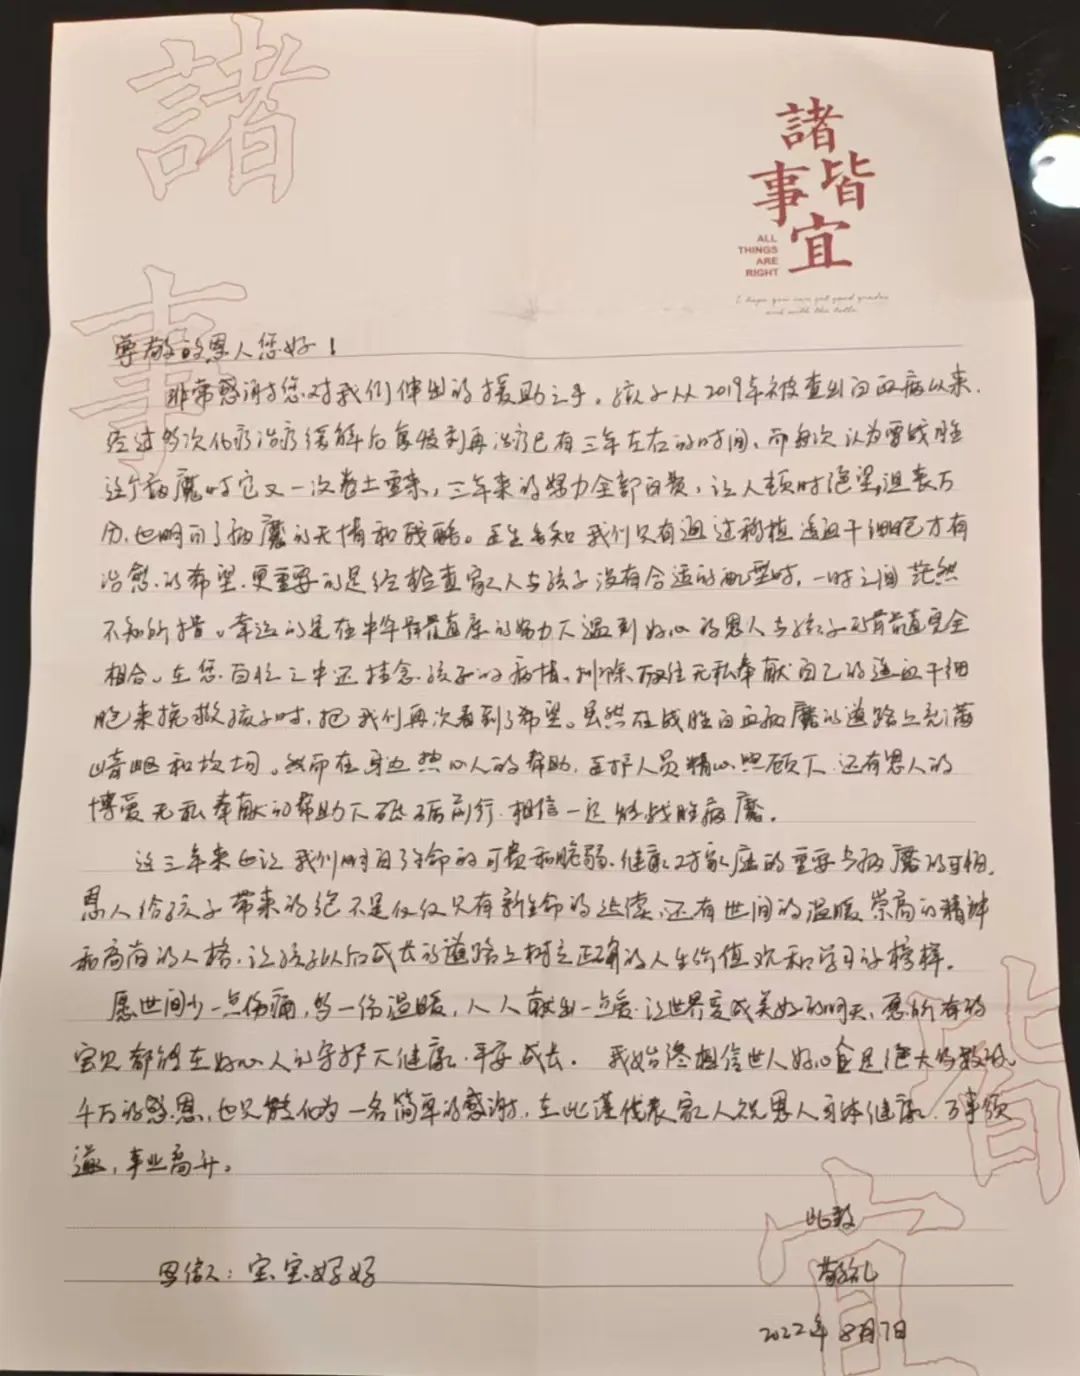 諸
事
諸
事皆
宜
ALL
THINGS
ARE
RIGHT
I hope you can get good grades
and with the
尊敬的恩人您好！
非常感谢您对我们伸出的援助之手。孩子从2019年被查出白血病以来.
经过多次化疗治疗缓解后复发到再治疗已有三年左右的时间，而每次认为要战胜
这个病魔时它又一次卷土重来，三年来的努力全部白费，让人顿时绝望，沮丧万
分，也明白了病魔的无情和残酷。医生告知我们只有通过移植造血干细胞才有
治愈的希望.更重要的是经检查家人与孩子没有合适的配型时，一时之间茫然
不知所措。幸运的是在中华骨髓库的努力下遇到好心的恩人与孩子的骨髓完全
相合。在您百忙之中还挂念孩子的病情、排除万难无私奉献自己的造血干细
胞来挽救孩子时，把我们再次看到了希望。虽然在战胜白血病魔的道路上充满
崎岖和坎坷。然而在身边热心人的帮助，医护人员精心照顾下，还有恩人的
博爱无私奉献的帮助下砥砺前行，相信一定能战胜病魔。
这三年来也让我们明白了生命的可贵和脆弱、健康对家庭的重要与病魔的可怕.
恩人给孩子带来的绝不是仅仅只有新生命的延续，还有世间的温暖、崇高的精神
和高尚的人格，让孩子以后成长的道路上树立正确的人生价值观和学习的榜样。
愿世间少一点伤痛，多一份温暖，人人献出一点爱，让世界变成美好的明天，愿所有的
宝贝都能在好心人的守护下健康、平安成长。我始终相信世人好心会是绝大多数的。
千万的感恩，也只能化为一名简单的感谢，在此谨代表家人祝恩人身体健康、万事顺
遂，事业高升。
此致
敬礼
写信人：宝宝好好
2022年8月7日
皆
宜